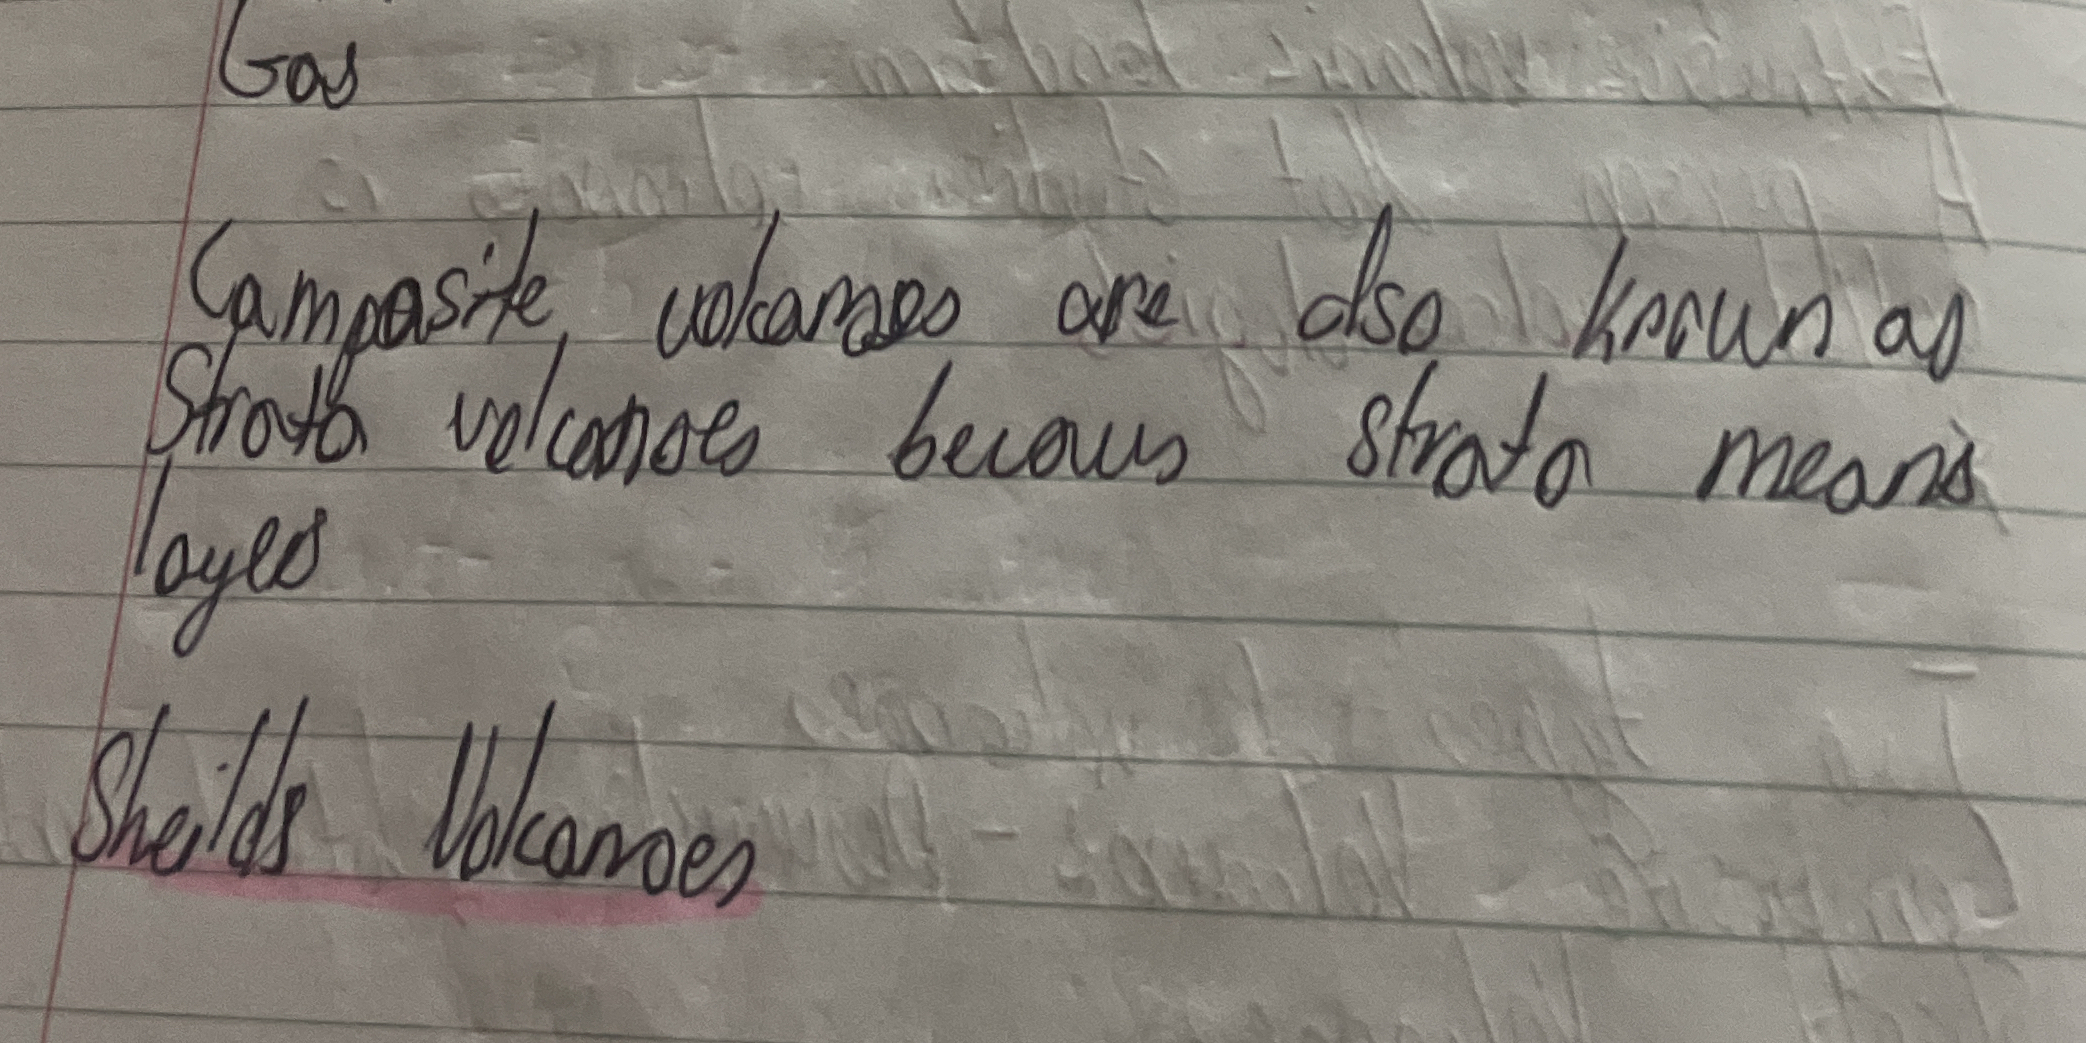 Gas
Composite volcanoes are also known as
Strato volcanoes becaus strata means
layes
Sheilds Volcanoes